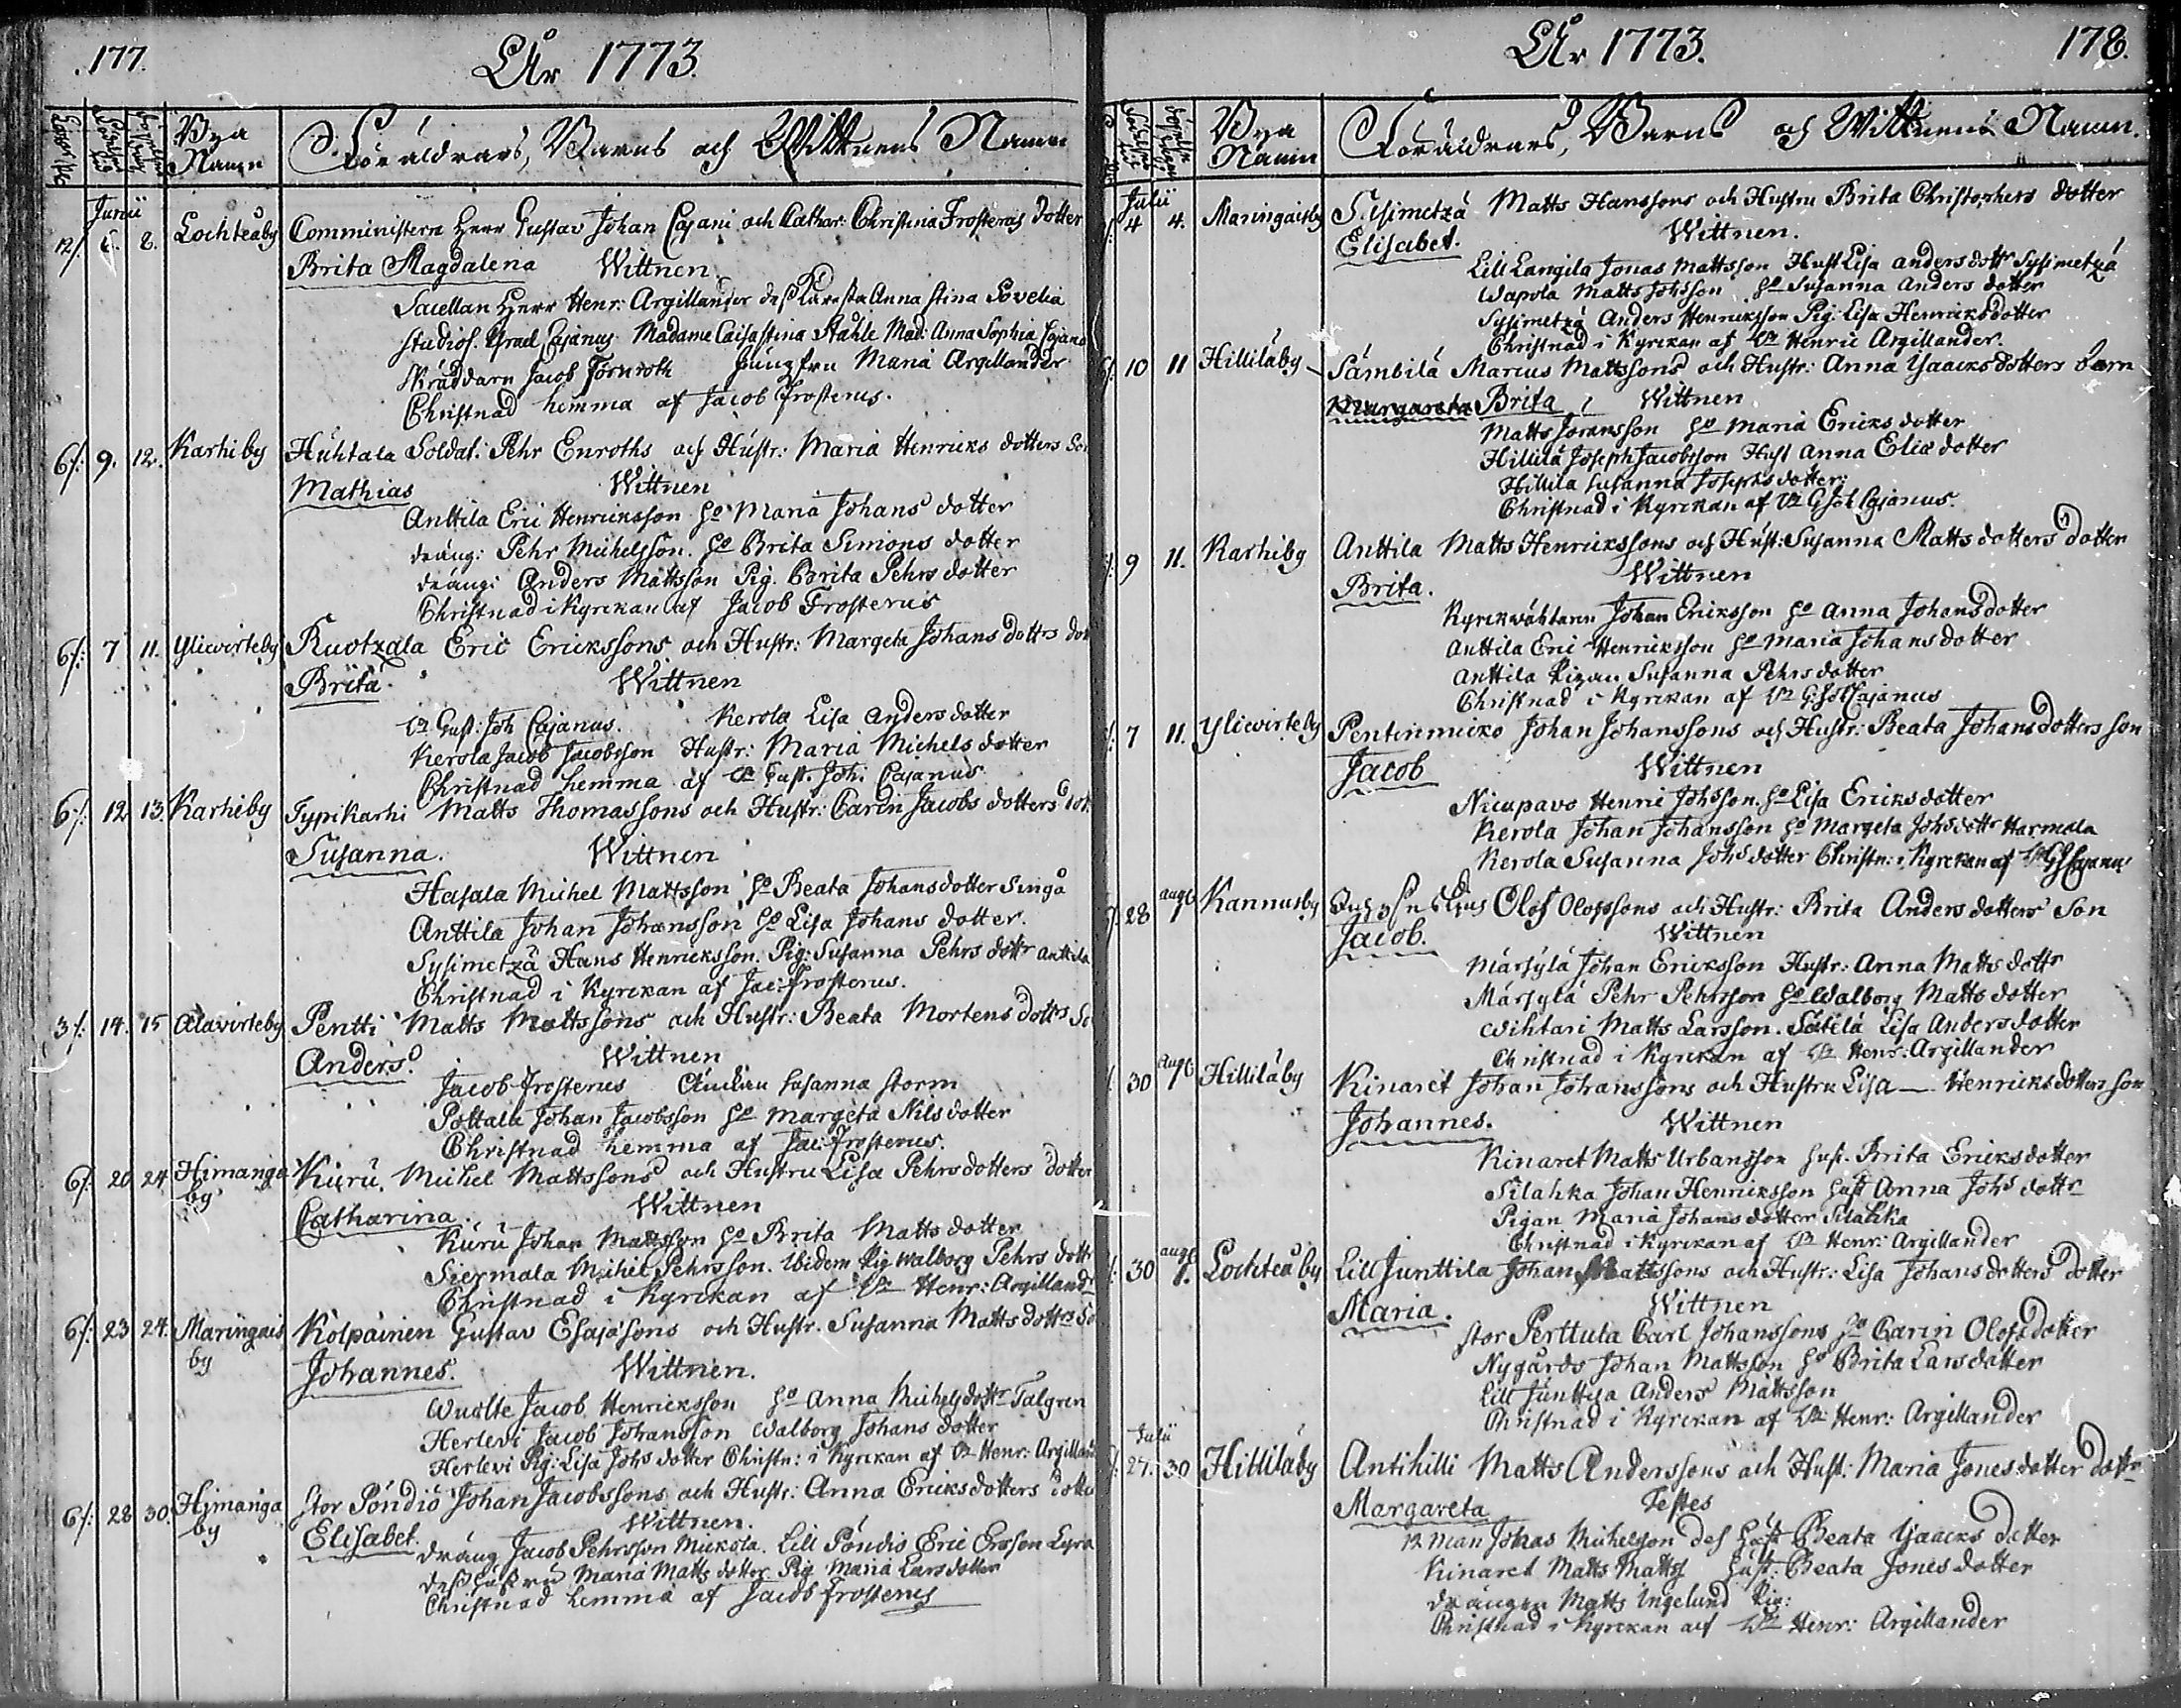 177.
År 1773.
Bya Namn
Föräldrars, Barns och Wittnens Namn
Junii
12/. 6. 8. Lochteåby Comministern Herr Gustav Johan Cajani och Cathar: Christina Frosterus dotter
Brita Magdalena Wittnen
Sacellan Herr Henr: Argillander dess Anna Stina Sovelia
Studios. Israel Cajanus Madame Caisa Stina Ståhle Mad: Anna Sophia Cajana
Skräddarn Jacob Törnroth Jungfru Maria Argillander
Christnad hemma af Jacob Frosterus.
6/: 9. 12. Karhiby Huhtala Soldat: Pehr Enroths och Hustr: Maria Henricks dotters Son
Mathias Wittnen
Anttila Eric Henricksson Ho Maria Johans dotter
dräng: Pehr Michelsson. Ho Brita Simons dotter
dräng: Anders Mattsson Pig. Brita Pehrs dotter
Christnad i Kyrckan af Jacob Frosterus
6/: 7 11. Yliwirteby Ruotzala Eric Ericksons och Hustr: Margeta Johans dottrs dott
Brita Wittnen
Vr Gust: Joh Cajanus. Kerola Lisa anders dotter
Kerola Jacob Jacobsson Hustr: Maria Michels dotter
Christnad hemma af Vr Gust. Joh: Cajanus
6/: 12 13. Karhiby Typikarhi Matts Thomassons och Hustr: Carin Jacobs dotters dott
Susanna. Wittnen
Hasala Michel Mattsson Ho Beata Johansdotter Singå
Anttila Johan Johansson Ho Lisa Johans dotter.
Sysimetzä Hans Henricksson. Pig: Susanna Pehrs dottr anttila
Christnad i Kyrckan af Jac: Frosterus.
3/: 14. 15 Alavirteby Pentti Matts Mattssons och Hustr: Beata Mortens dottrs So
Anders. Wittnen
Jacob Frosterus Susanna Storm
Pottala Johan Jacobsson Ho Margeta Nils dotter
Christnad hemma af Jac: Frosterus.
6/: 20 24. Himanga by Kuru Michel Mattssons och Hustru Lisa Pehrsdotters dotter
Catharina. Wittnen
Kuru Johan Mattsson Ho Brita Matts dotter
Siermala Michel Pehrsson. Ibidem Pig Walborg Pehrs dottr
Christnad i Kyrckan af Vr Henr: Argilland
6/: 23 24. Maringais by Kolpainen Gustav Esajæsons och Hustr. Susanna Matts dottrs So
Johannes. Wittnen.
Wuolte Jacob Henricksson Ho Anna Michelsdottr Talgren
Herlevi Jacob Johansson Walborg Johans dotter
Herlevi Pig: Lisa Johs dotter Christn: i Kyrckan af Vr Henr: Argilland
6/: 28 30. Himanga by Stor Pöndiö Johan Jacobssons och Hustr: Anna Ericksdotters dotter
Elisabet. Wittnen.
dräng Jacob Pehrsson Mickola. Lill Pöndiö Eric Erson Lyra
dess Hustru Maria Matts dotter Pig Maria Lars dotter
Christnad hemma af Jacob Frosterus
År 1773.
178.
Bya Namn
Föräldrars, Barns och Wittnens Namn.
Julii
4 4. Maringaisby Sysimetzä Matts Hanssons och Hustru Brita Christophers dotter
Elisabet. Wittnen.
Lill Langila Jonas Mattsson Hust Lisa anders dottr Sysimetzä
Wapola Matts Johsson Ho Susanna Anders dotter
Sysimetzä Anders Henricksson Pig: Lisa Henricksdotter
Christnad i Kyrckan af Vr Henric Argillander.
10 11 Hilliläby Sämbilä Marcus Mattssons och Hustr: Anna Ysaacks dotters barn
Margareta Brita Wittnen
Matts Joransson Ho Maria Ericks dotter
Hillilä Joseph Jacobsson Hust Anna Eliæ dotter
Hillilä Susanna Josephs dotter:
Christnad i Kyrckan af Vr G Joh Cajanus.
9 11. Karhiby Anttila Matts Henrickssons och Hust: Susanna Matts dotters dotter
Brita. Wittnen
Kyrckwächtaren Johan Ericksson Ho Anna Johansdotter
Anttila Eric Henricksson Ho Maria Johansdotter
Anttila Pigan Susanna Pehrs dotter
Christnad i Kyrckan af Vr G Joh Cajanus
7 11. Yliwirteby Penttinmicko Johan Johanssons och Hustr: Beata Johansdotters son
Jacob Wittnen
Nicupavo Henric Johsson. Ho Lisa Ericksdotter
Kerola Johan Johansson Ho Margeta Johsdottr Harmala
Kerola Susanna Johs dotter Christn: i Kyrckan af Vr GJ Cajanus
28 aug 1. Kannusby Olof Olofssons och Hustr: Brita Andersdotters Son
Jacob. Wittnen
Märsylä Johan Ericksson Hustr: Anna Matts dottr
Märsylä Pehr Pehrsson Ho Walborg Matts dotter
Wihtari Matts Larsson. Såtilä Lisa Andersdotter
Christnad i Kyrckan af Vr Henr: Argillander
30 Aug 1. Hilliläby Kinaret Johan Johanssons och Hustru Lisa — Henricksdotters son
Johannes. Wittnen
Kinaret Matts Urbansson Hust. Brita Ericksdotter
Silahka Johan Henricksson Hust Anna Johs dottr
Pigan Maria Johans dotter Silahka
Christnad i Kyrckan af Vr Henr: Argillander
30 aug 1. Lochteåby Lill Junttila Johan Mattssons och Hustr: Lisa Johansdotters dotter
Maria. Wittnen
Stor Perttula Carl Johanssons Ho Carin Olofsdotter
Nygårds Johan Mattsson Ho Brita Larsdotter
Lill Junttila Anders Mattsson
Christnad i Kyrckan af Vr Henr: Argillander
Julii
27. 30 Hilliläby Antihilli Matts Anderssons och Hust: Maria Jonesdotter dottr
Margareta Testes
12 man Johas Michelson des Hust Beata Ysaacks dotter
Kinaret Matts Matts Hust: Beata Jones dotter
drängen Matts Ingelund Pig:
Christnad i Kyrckan af Vr Henr: Argillander